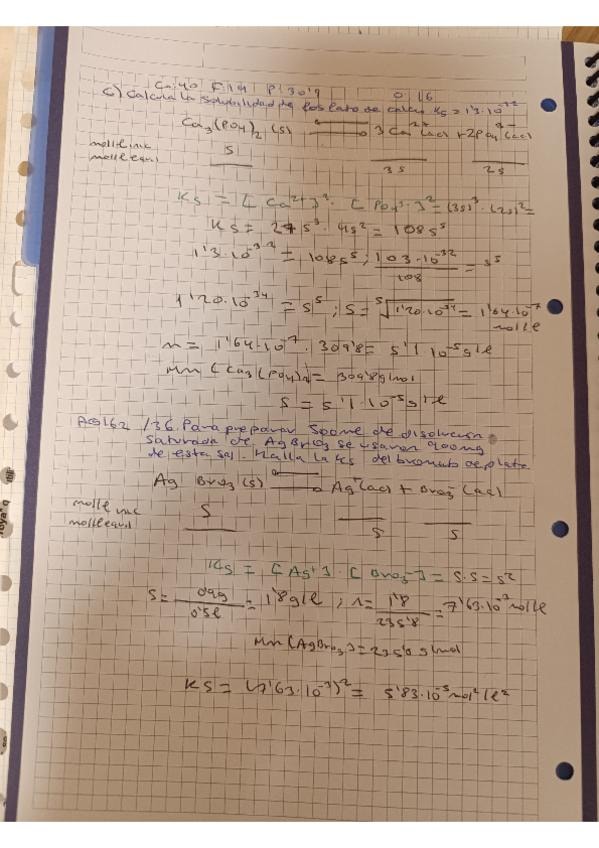 Ca: 40 F: 19 P: 30'9 O: 16
c) Calcula la solubilidad de fosfato de calcio Ks = 1'3·10⁻³²
Ca₃(PO₄)₂ (s) ⇌ 3 Ca²⁺(ac) + 2PO₄³⁻(ac)
mol/l inic S
mol/l equi 3s 2s
Ks = [Ca²⁺]³ · [PO₄³⁻]² = (3s)³ · (2s)² =
Ks = 27s³ · 4s² = 108s⁵
1'3·10⁻³² = 108s⁵ ; 1'3·10⁻³² / 108 = s⁵
1'20·10⁻³⁴ = s⁵ ; s = ⁵√1'20·10⁻³⁴ = 1'64·10⁻⁷ mol/l
m = 1'64·10⁻⁷ · 309'8 = 5'1 10⁻⁵ g/l
Mm (Ca₃(PO₄)₂) = 309'8 g/mol
S = 5'1·10⁻⁵ g/l
Pág 162 /36. Para preparar 500 mL de disolución
saturada de AgBrO₃ se usaron 900mg
de esta sal. Halla la Ks del bromato de plata
Ag BrO₃(s) ⇌ Ag⁺(ac) + BrO₃⁻(ac)
mol/l inic S
mol/l equi S S
Ks = [Ag⁺] · [BrO₃⁻] = s·s = s²
S = 0'9g / 0'5l = 1'8g/l ; n = 1'8 / 235'8 = 7'63·10⁻³ mol/l
Mm (AgBrO₃) = 235'8 g/mol
Ks = (7'63·10⁻³)² = 5'83·10⁻⁵ mol²/l²